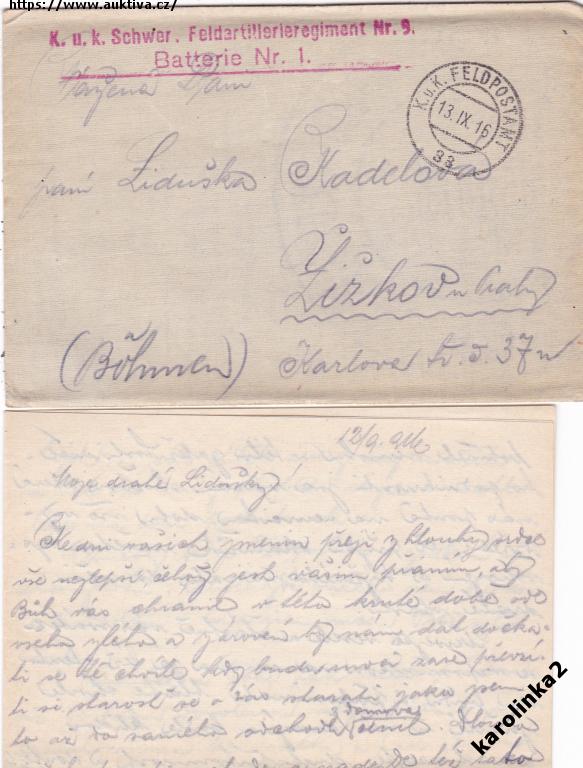 https://www.auktiva.cz/
K. u. k. Schwer. Feldartillerieregiment Nr. 9.
Batterie Nr. 1.
Vážená Pani
K.u.K. FELDPOSTAMT
13.IX.16
paní Liduška Kadelova
Žižkov u Prahy
(Böhmen) Karlova tř. č. 37n
12/9. 916.
Moje drahé Lidušky!
Ke dni vašich jmenin přeji z hlouby srdce
vše nejlepší, čehož jest vašim přáním, aby
Bůh vás chránil v této kruté době od
všeho zlého a zároveň by nám dal dočka-
ti se té chvíle kdy budu moci zase převzí-
ti starost se o vás starati jako jsem
to až do samého odchodu z domova činil.
karolinka2